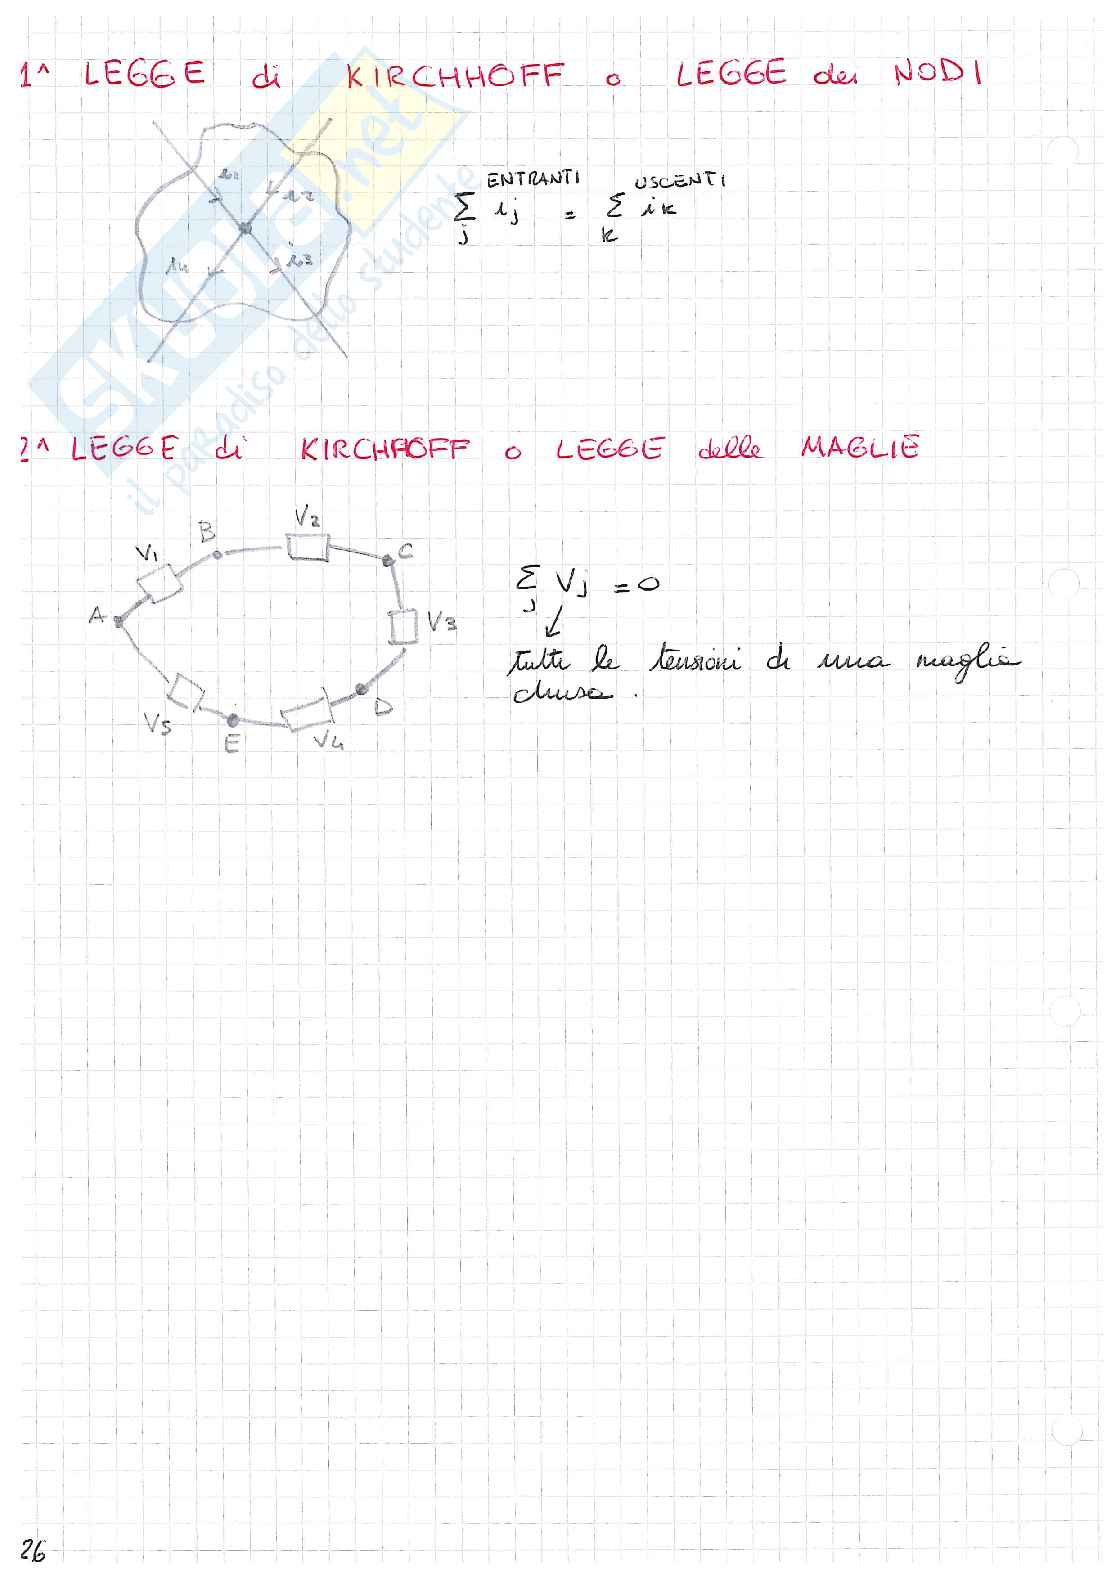 1^ LEGGE di KIRCHHOFF o LEGGE dei NODI
SKUOLA.net
il paradiso dello studente
i1
i2
i4
i3
ENTRANTI USCENTI
Σ ij = Σ ik
j k
2^ LEGGE di KIRCHHOFF o LEGGE delle MAGLIE
V2
B
V1
C
A
V3
Σ Vj = 0
j
tutte le tensioni di una maglia
chiusa.
D
V5
E
V4
26